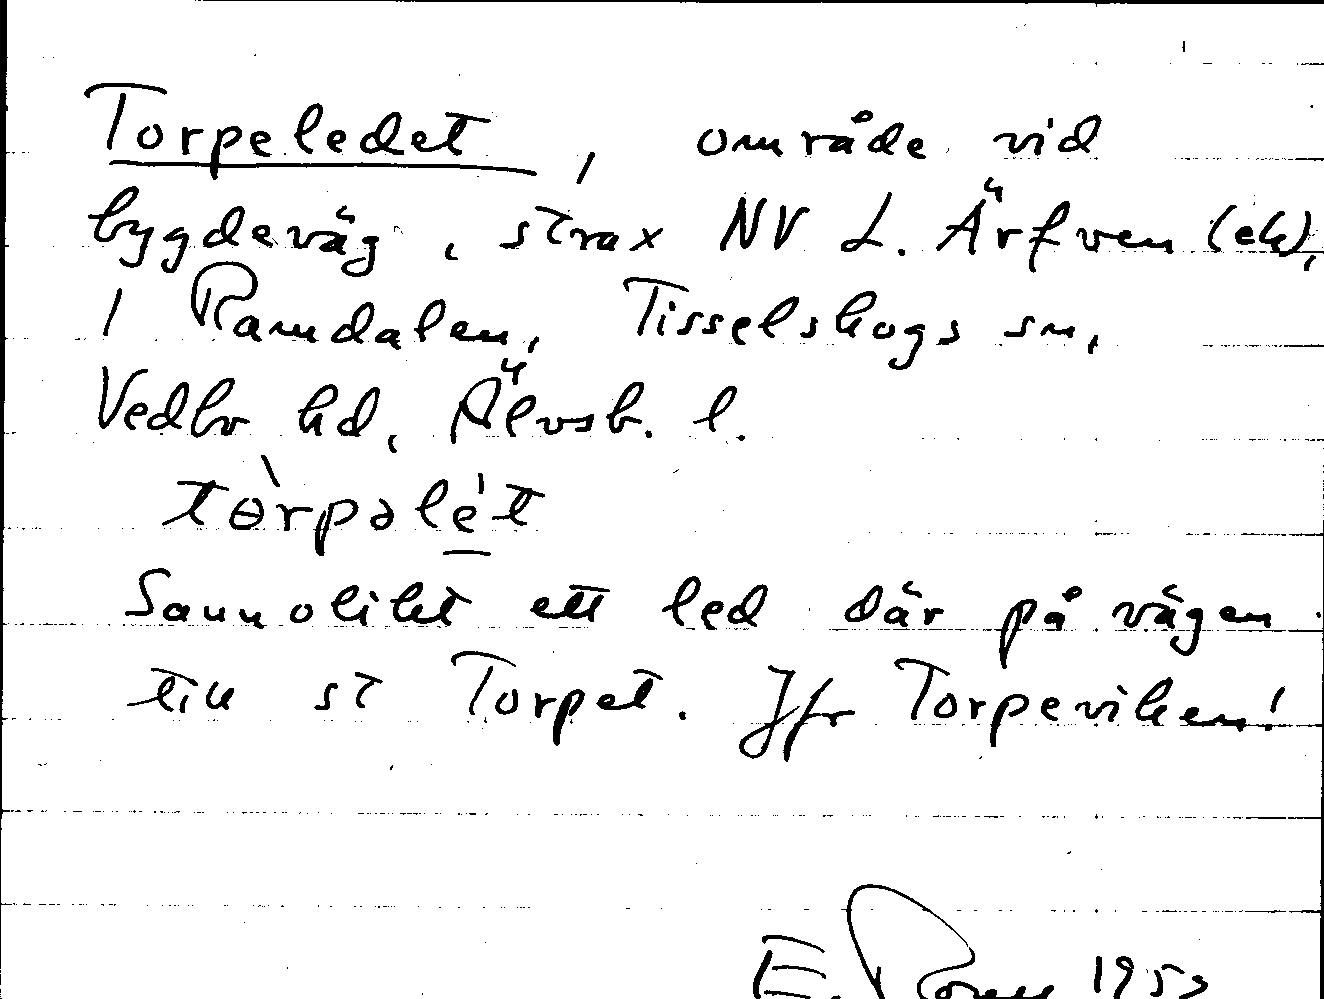 Torpeledet, område vid
bygdeväg, strax NV L. Ärfven (ek),
i Ramdalen, Tisselskogs sn,
Vedbo hd, Älvsb. l.
tɵ̀rpəlét
Sannolikt ett led där på vägen
till st Torpet. Jfr Torpeviken!
E. 195